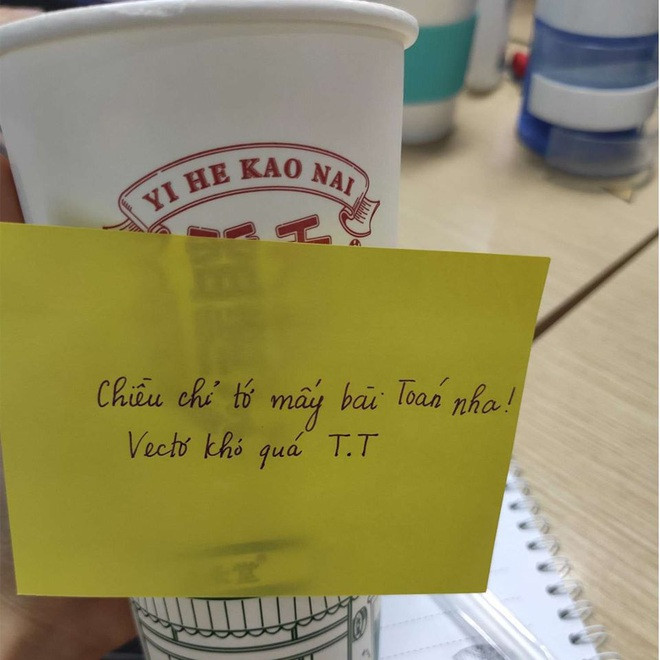 YI HE KAO NAI
Chiều chỉ tớ mấy bài Toán nha!
Vectơ khó quá T.T